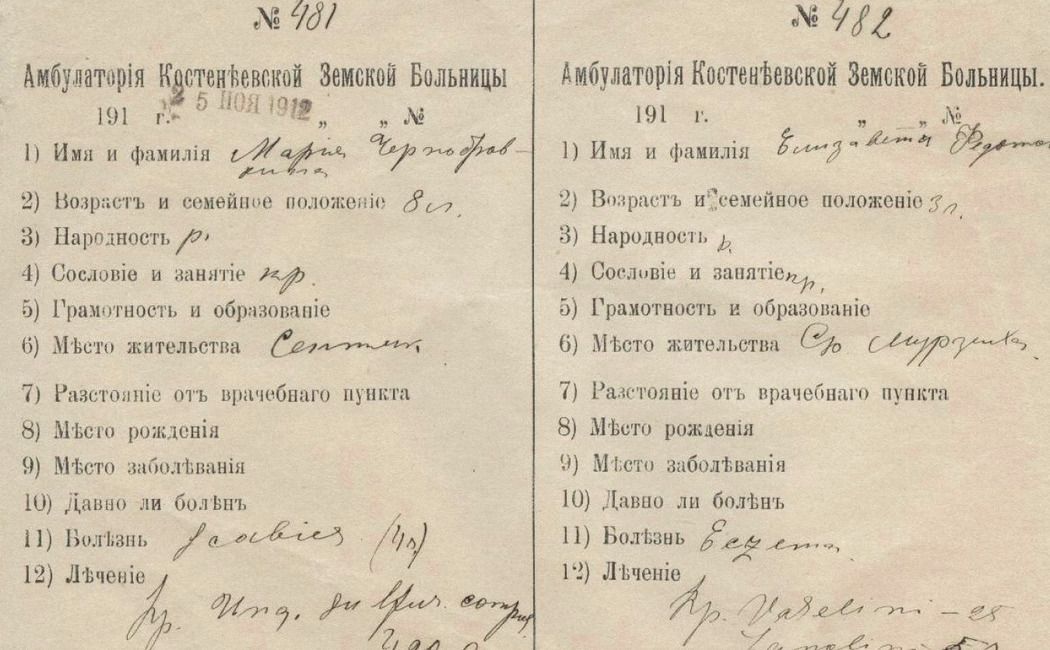 № 481
Амбулаторія Костенѣевской Земской Больницы
191 г. 25 НОЯ 1912 „ „ №
1) Имя и фамилія Марія Чернобров-
кина
2) Возрастъ и семейное положеніе 8 л.
3) Народность р.
4) Сословіе и занятіе кр.
5) Грамотность и образованіе
6) Мѣсто жительства
7) Разстояніе отъ врачебнаго пункта
8) Мѣсто рожденія
9) Мѣсто заболѣванія
10) Давно ли болѣнъ
11) Болѣзнь Scabies (4л)
12) Лѣченіе
Rp. Ung. sulfur. comp.
№ 482
Амбулаторія Костенѣевской Земской Больницы.
191 г. „ „ №
1) Имя и фамилія Елизавета Федото
2) Возрастъ и семейное положеніе 3 л.
3) Народность р.
4) Сословіе и занятіе кр.
5) Грамотность и образованіе
6) Мѣсто жительства Мурзиха
7) Разстояніе отъ врачебнаго пункта
8) Мѣсто рожденія
9) Мѣсто заболѣванія
10) Давно ли болѣнъ
11) Болѣзнь Eczema
12) Лѣченіе
Rp. Vaselini –
Lanolini